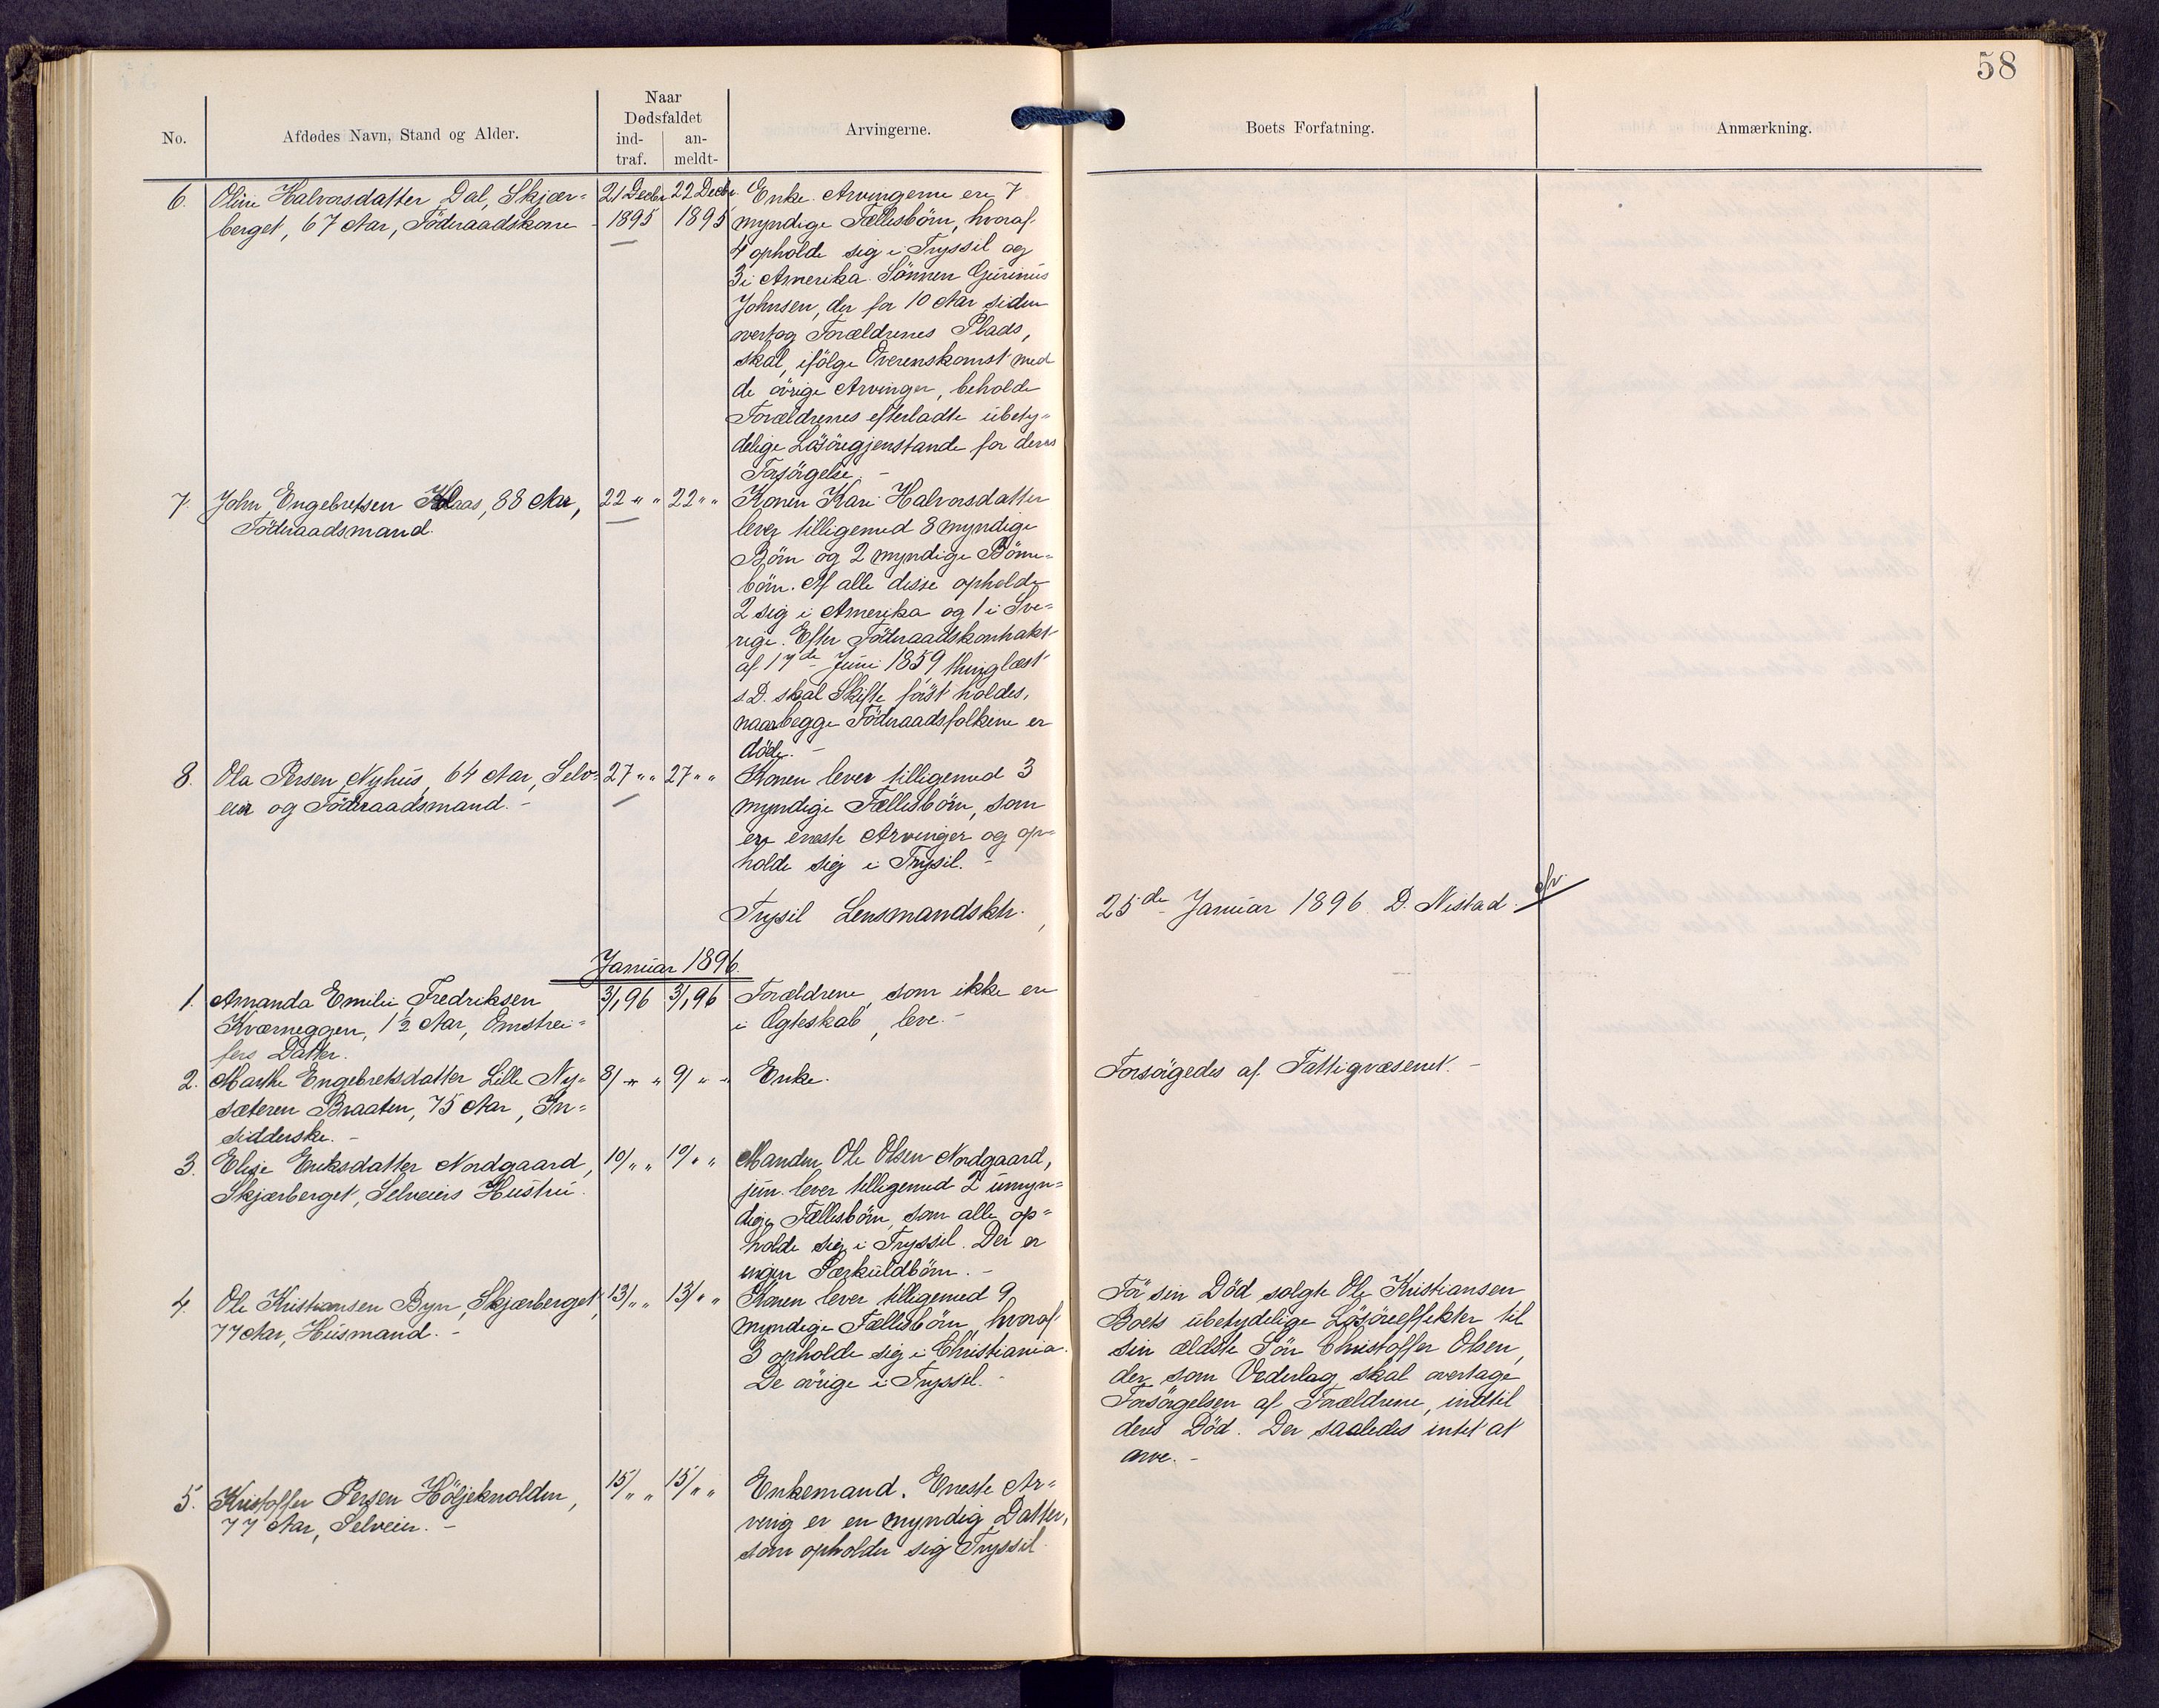 58
No.
Afdødes Navn, Stand og Alder.
Naar
Dødsfaldet
ind-
traf.
an-
meldt-
Arvingerne.
Boets Forfatning.
Anmærkning.
6. Oline Halvorsdatter Dal, Skjær-
berget, 67 Aar, Föderaadskone
21 Decbr
1895
22 Decbr.
1895
Enke. Arvingerne ere 7
myndige Fællesbörn, hvoraf
4 opholde sig i Tryssil og
3 i Amerika. Sönnen Gurinius
Johnsen, der for 10 Aar siden
overtog Forældrenes Plads,
skal, ifölge Overenskomst med
de övrige Arvinger, beholde
Forældrenes efterladte ubety-
delige Lösöregjenstande for deres
Forsörgelse. –
7. John Engebretsen , 88 Aar,
Föderaadsmand.
22 " "
22 " "
Konen Kari Halvorsdatter
lever tilligemed 8 myndige
Börn og 2 myndige Börne-
börn. Af alle disse opholde
2 sig i Amerika og 1 i Sve-
rige. Efter Föderaadskontrakt
af 17de Juni 1859, thinglæst
s.D. skal Skifte först holdes,
naar begge Föderaadsfolkene er
döde. –
8. Ola Persen Nyhus, 64 Aar, Selv-
eier og Föderaadsmand. –
27 " "
27 " "
Konen lever tilligemed 3
myndige Fællesbörn, som
ere eneste Arvinger og op-
holde sig i Trysil. –
Trysil Lensmandsktr.,
25de Januar 1896. D. Nistad.
Januar 1896.
1. Amanda Emilie Fredriksen
Kværneggen, 1½ Aar, Omstrei-
fers Datter.
3/1 96
3/1 96
Forældrene, som ikke ere
i Ægteskab, leve. –
2. Marthe Engebretsdatter Lille Ny-
sæteren Braaten, 75 Aar, In-
sidderske. –
8/ " "
9/ " "
Enke.
Forsörgedes af Fattigvæsenet. –
3. Elise Eriksdatter Nordgaard,
Skjærberget, Selveiers Hustru.
10/ " "
10/ " "
Manden, Ole Olsen Nordgaard,
jun. lever tilligemed 2 umyn-
dige Fællesbörn, som alle op-
holde sig i Tryssil. Der er
ingen Særkuldbörn. –
4. Ole Kristiansen Byn, Skjærberget,
77 Aar, Husmand. –
13/ " "
13/ " "
Konen lever tilligemed 9
myndige Fællesbörn, hvoraf
3 opholde sig i Christiania.
De övrige i Tryssil. –
För sin Död solgte Ole Kristiansen
Boets ubetydelige Lösöreeffekter til
sin ældste Sön Christoffer Olsen,
der som Vederlag skal overtage
Forsörgelsen af Forældrene, indtil
deres Död. Der saaledes intet at
arve. –
5. Kristoffer Persen Höljeknolden,
77 Aar, Selveier. –
15/ " "
15/ " "
Enkemand. Eneste Ar-
ving er en myndig Datter,
som opholder sig Tryssil.